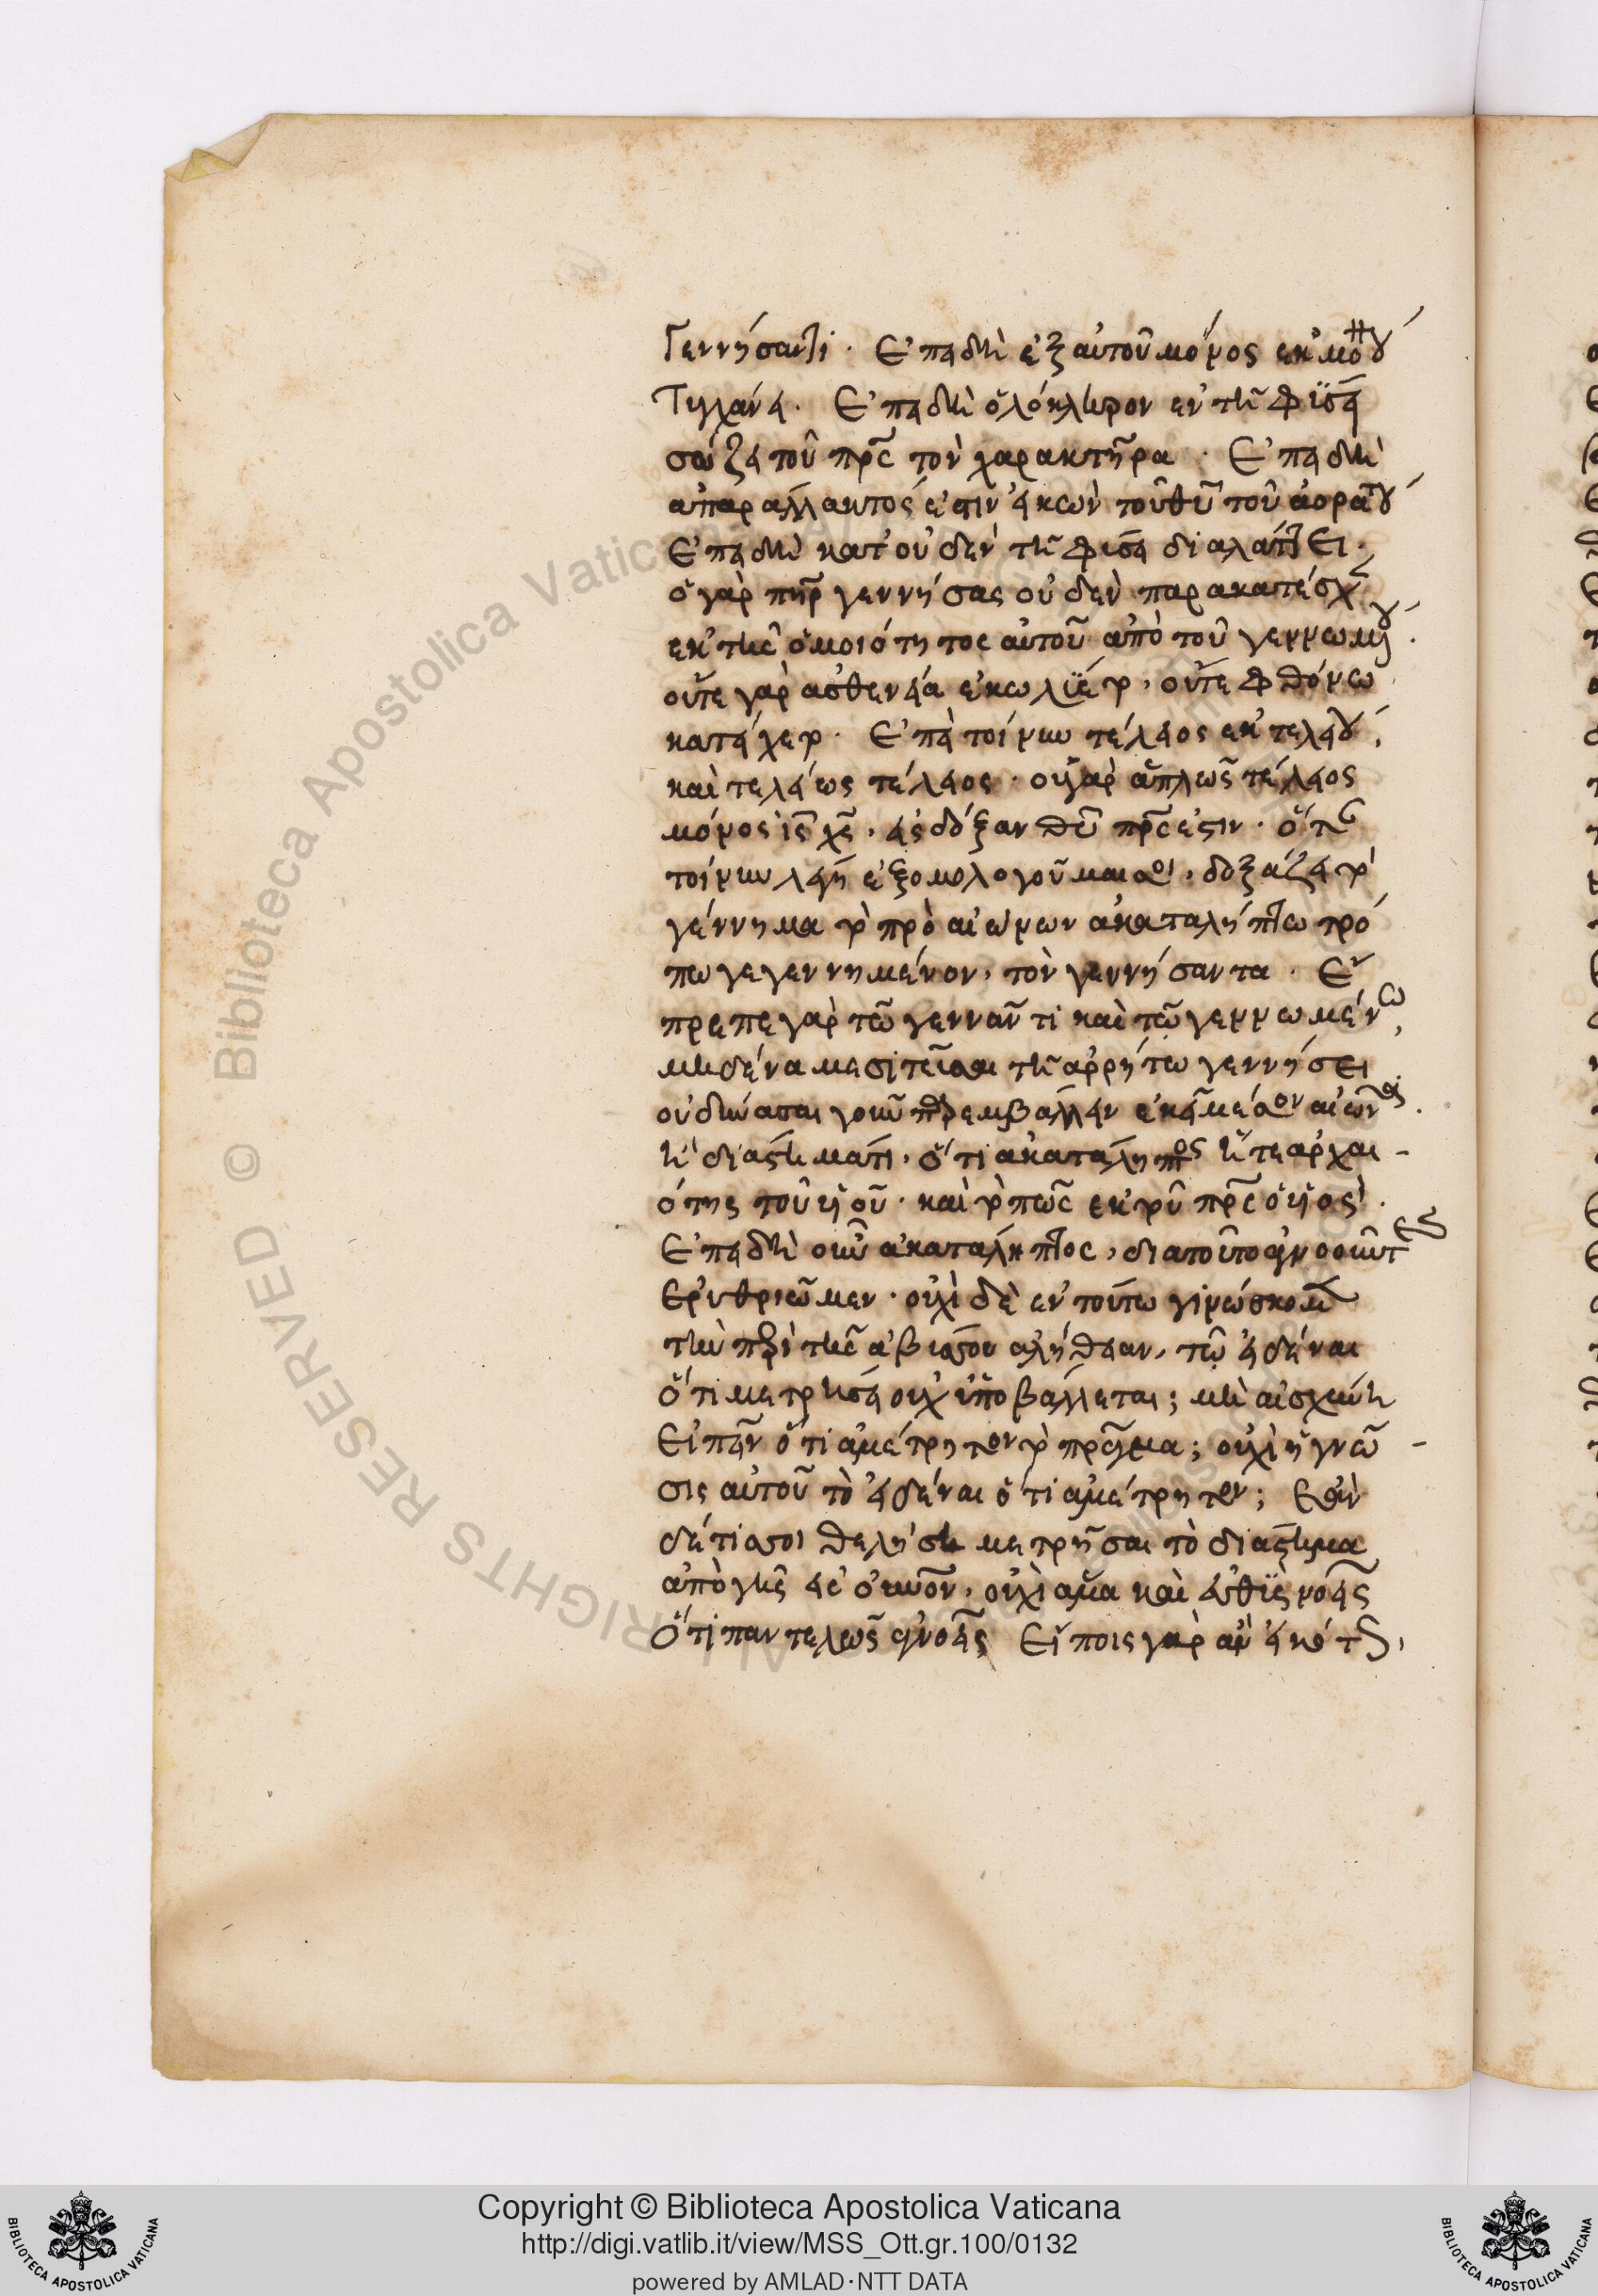 Γεννήσαντι · Ἐπειδὴ ἐξ αὐτοῦ μόνος ἐκ μόνου
Τυγχάνει · Ἐπειδὴ ὁλόκληρον ἐν τῇ φύσει
σώζει τοῦ πρς τὸν χαρακτῆρα · Ἐπειδὴ
ἀπαράλλακτός ἐστιν εἰκὼν τοῦ θυ τοῦ ἀοράτου
Ἐπειδὴ κατ' οὐδὲν τῇ φύσει διαλάττει ·
ὁ γὰρ πηρ γεννήσας οὐδὲν παρακατέσχε
ἐκ τῆς ὁμοιότητος αὐτοῦ ἀπὸ τοῦ γεννωμένου ·
οὔτε γὰρ ἀσθενεία ἐκωλύετο, οὔτε φθόνω
κατείχετο · Ἐπεὶ τοίνυν τέλειος ἐκ τελείου,
καὶ τελείως τέλειος · οὐ γὰρ ἁπλῶς τέλειος
μόνος ις χς, εἰς δόξαν θυ πρς ἐστιν · ὅτε
τοίνυν λέγει ἐξομολογοῦμαι σοι, δοξάζει τὸ
γέννημα τὸ πρὸ αἰώνων ἀκαταλήπτω τρό
πω γεγεννημένον, τὸν γεννήσαντα · Ἔν
πρεπε γὰρ τῶ γεννῶντι καὶ τῶ γεννωμένω,
μηδένα μεσιτεῦσαι τῇ ἀρρήτω γεννήσει
οὐ δύνασαι γοῦν παρεμβάλλειν ἐκεῖ μέσον αἰῶνας ·
ἢ διαστήματι, ὅτι ἀκατάληπτος ἥτε ἀρχαι -
ότης τοῦ υἱοῦ · καὶ τὸ πῶς ἐκ τοῦ πρς ὁ υἱός ·
Ἐπειδὴ οὖν ἀκατάληπτος, διατοῦτο ἀγνοοῦντες
ἐρυθριῶμεν · οὐχὶ δὲ ἐν τούτω γινώσκομεν
τὴν περὶ τῆς ἀβύσσου ἀλήθειαν, τῶ εἰδέναι
ὅτι μετρήσει οὐχ ὑποβάλλεται; μὴ αἰσχύνη
Εἰπεῖν ὅτι ἀμέτρητον τὸ πρᾶγμα; οὐχὶ ἡ γνῶ -
σις αὐτοῦ τὸ εἰδέναι ὅτι ἀμέτρητον; Ἐὰν
δέ τι σοι θελήση μετρῆσαι τὸ διάστημα
ἀπὸ γῆς εἰς οὐνὸν, οὐχὶ ἅμα καὶ εὐθὺς νοεῖς
Ὅτι παντελῶς ἀγνοεῖς Εἴποις γὰρ ἂν εἰκότως,
Copyright © Biblioteca Apostolica Vaticana
http://digi.vatlib.it/view/MSS_Ott.gr.100/0132
powered by AMLAD·NTT DATA